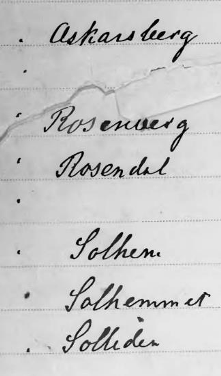 Askarsberg
Rosenberg
Rosendal
Solhem
Solhemmet
Solliden